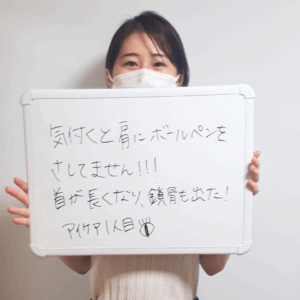 気付くと肩にボールペンを
さしてません!!!
首が長くなり、鎖骨も出た!
アイケア1人目!!!